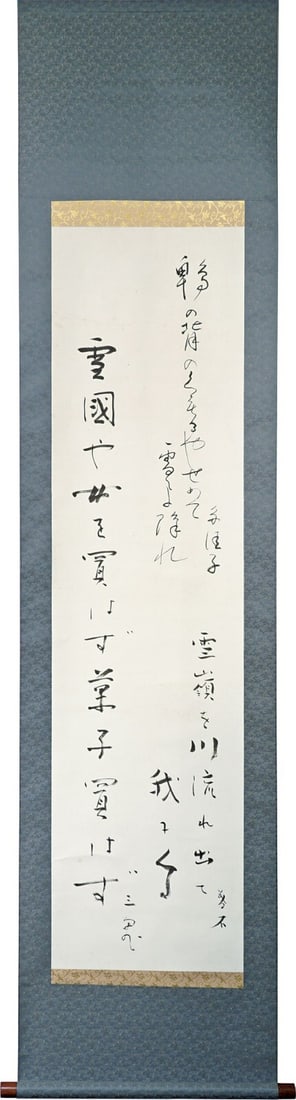 鵯の背の やせめて
雪よ降れ
多佳子
雪嶺を川流れ出て
我に
暮石
雪國や女を買はず菓子買はず
三鬼